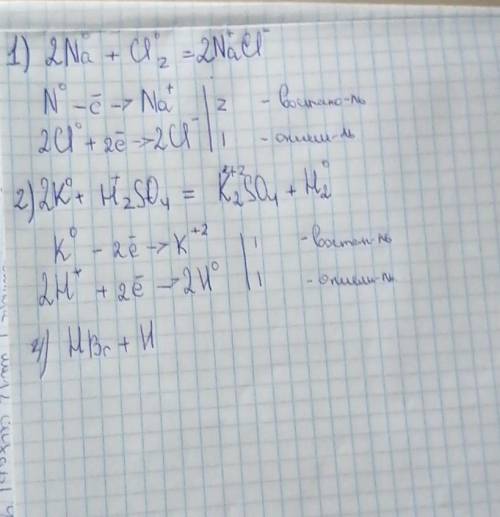 1) 2Na⁰ + Cl₂⁰ = 2Na⁺Cl⁻
N⁰ – ē → Na⁺ | 2 - восстано-ль
2Cl⁰ + 2ē → 2Cl⁻ | 1 - окисли-ль
2) 2K⁰ + H₂⁺SO₄ = K₂⁺²SO₄ + H₂⁰
K⁰ – 2ē → K⁺² | 1 - восстан-ль
2H⁺ + 2ē → 2H⁰ | 1 - окисли-ль
4) HBr + H